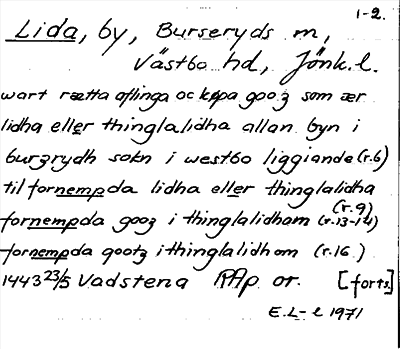 1-2.
Lida, by, Burseryds sn,
Västbo hd, Jönk.l.
wart rætta aflinga oc køpa gooz som ær
lidha eller thinglalidha allan byn i
burzrydh sokn i westbo liggiande (r.6)
til fornempda lidha eller thinglalidha
(r.9)
fornempda gooz i thinglalidham (r.13-14)
fornempda gootz i thinglalidhom (r.16)
1443 23/5 Vadstena RAp or. [forts.]
E.L-l 1971